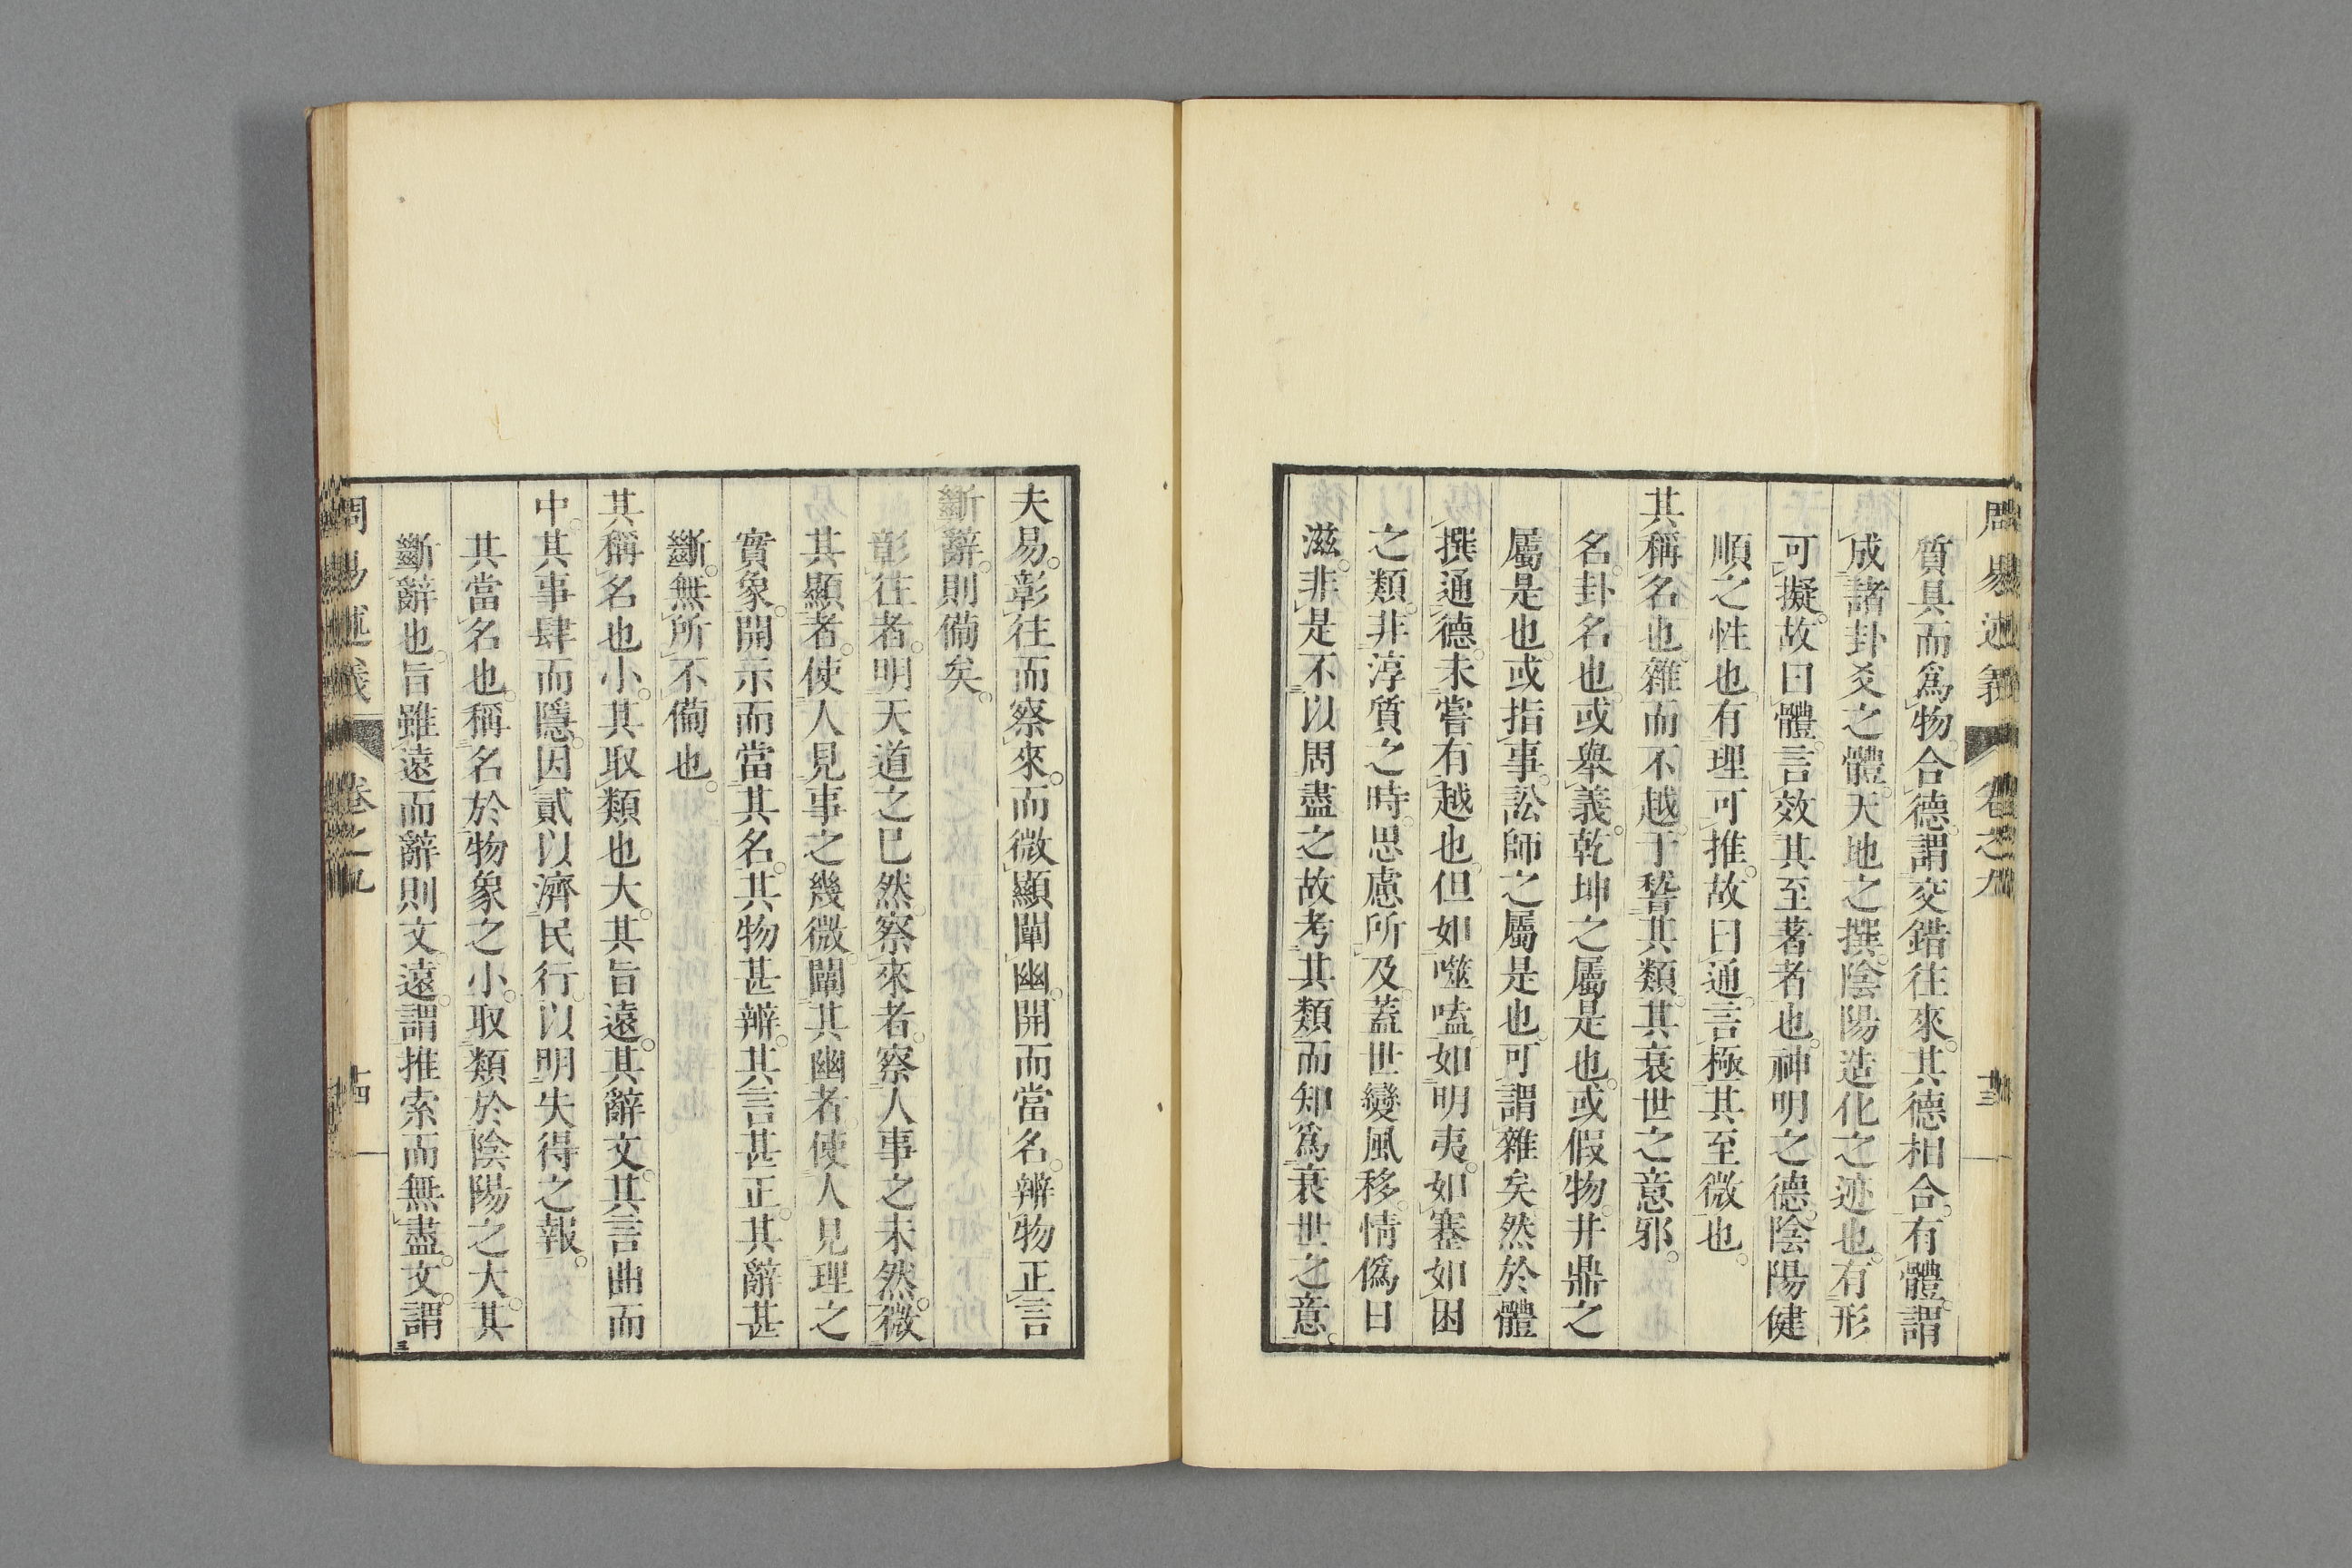 周易述義 卷之九 十三
質具而爲物。合德。謂交錯往來。其德相合。有體。謂
成諸卦爻之體。天地之撰。陰陽造化之迹也。有形
可擬。故曰體。言效其至著者也。神明之德。陰陽健
順之性也。有理可推。故曰通。言極其至微也。
其稱名也。雜而不越。于稽其類。其衰世之意邪。
名。卦名也。或舉義。乾坤之屬是也。或假物。井鼎之
屬是也。或指事。訟師之屬是也。可謂雜矣。然於體
撰通德。未嘗有越也。但如噬嗑。如明夷。如蹇如困
之類。非淳質之時。思慮所及。蓋世變風移。情僞日
滋。非是不以周盡之故。考其類而知爲衰世之意。
夫易。彰往而察來。而微顯闡幽。開而當名。辨物正言
斷辭。則備矣。
彰往者。明天道之已然。察來者。察人事之未然。微
其顯者。使人見事之幾微。闡其幽者。使人見理之
實象。開示而當其名。其物甚辨。其言甚正。其辭甚
斷。無所不備也。
其稱名也小。其取類也大。其旨遠。其辭文。其言曲而
中。其事肆而隱。因貳以濟民行。以明失得之報。
其當名也。稱名於物象之小。取類於陰陽之大。其
斷辭也。旨雖遠而辭則文。遠。謂推索而無盡。文。謂
周易述義 卷之九 十四